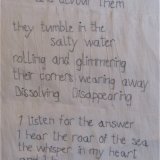 and devour them
they tumble in the
salty water
rolling and glimmering
their corners wearing away
Dissolving Disappearing
I listen for the answer
I hear the roar of the sea
the whisper in my heart